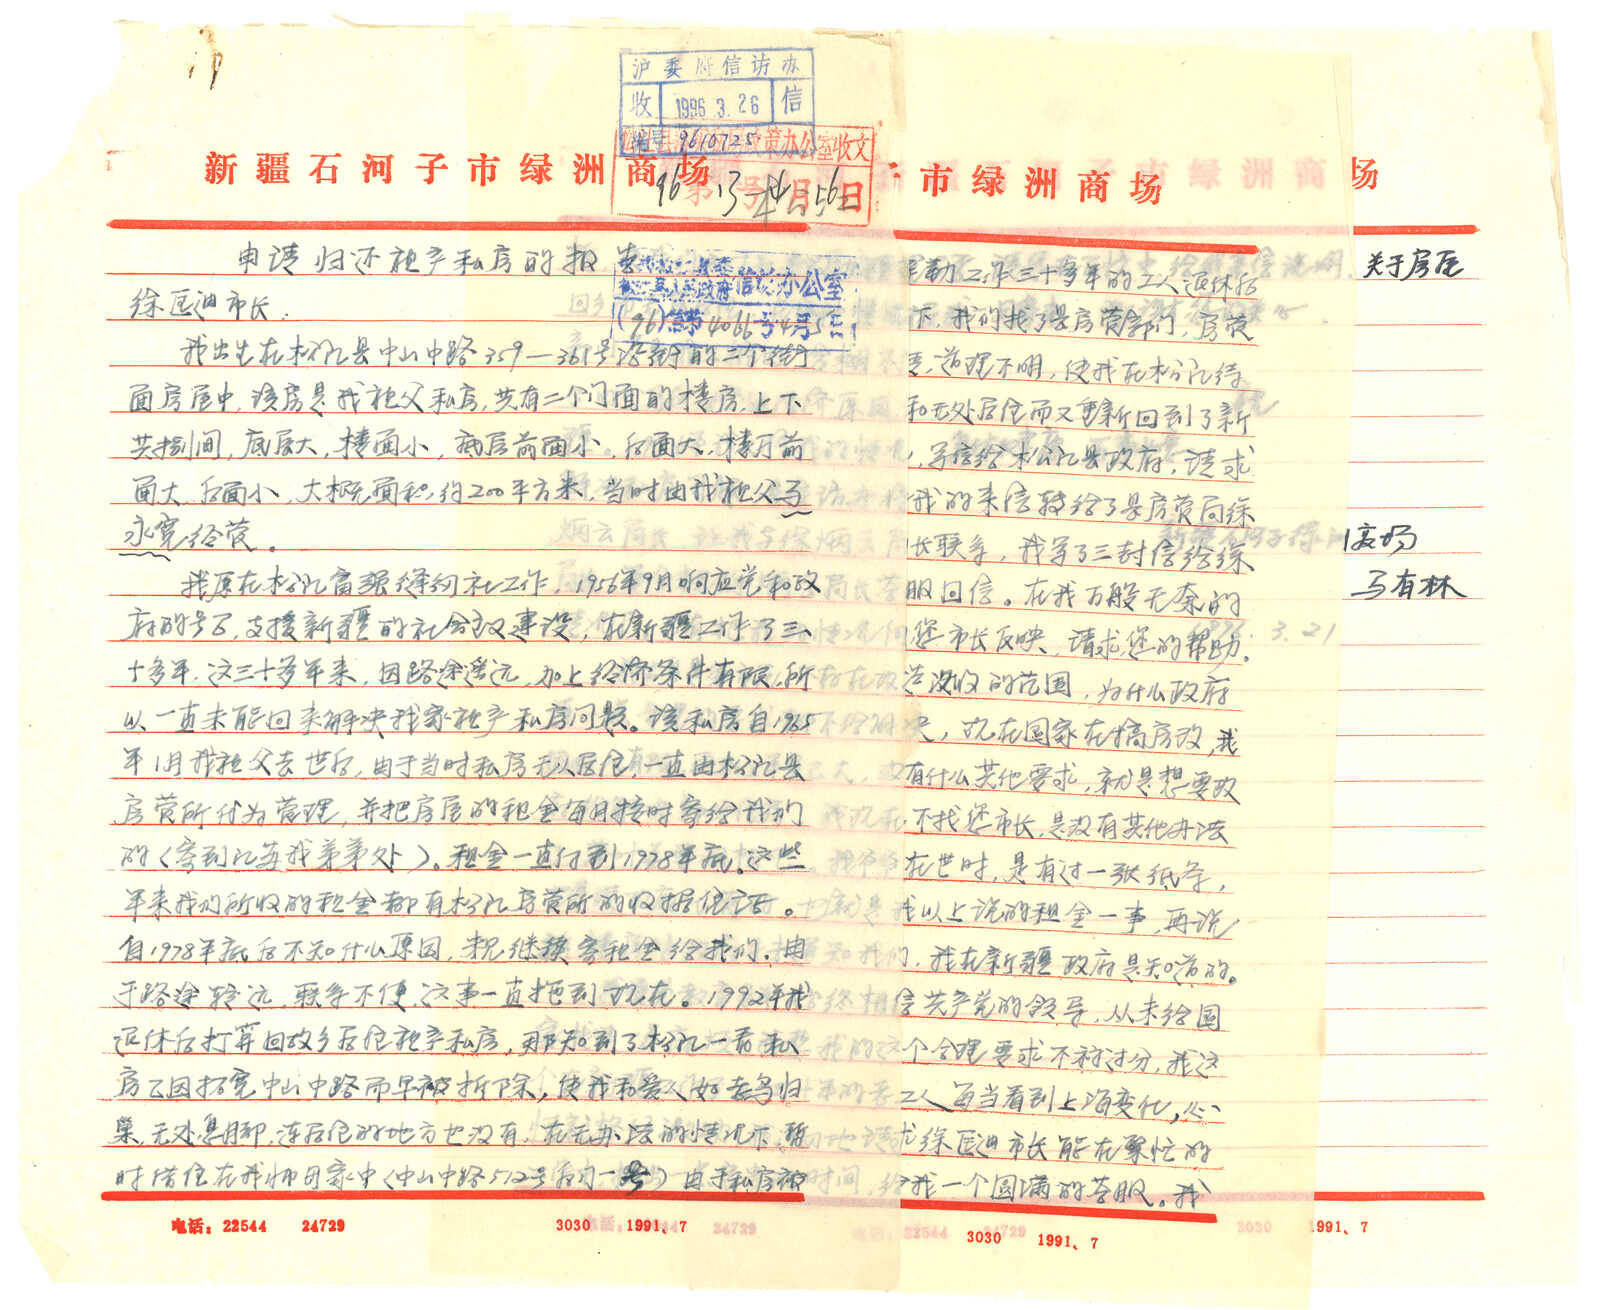 沪委府信访办
收 1996.3.26 信
编号 9610725
政策办公室收文
96 第 13 号 月 日
新疆石河子市绿洲商场
申请归还祖产私房的报告
信访办公室
人民政府
(96)信第4066号4月5日
徐匡迪市长:
我出生在松江县中山中路359—361号沿街的二个街
面房屋中,该房是我祖父私房,共有二个门面的楼房,上下
共拾间,底层大,楼面小,底层前面小,后面大,楼层前
面大,后面小,大概面积约200平方米,当时由我祖父马
永宽经营。
我原在松江富强缝纫社工作,1956年9月响应党和政
府的号召,支援新疆的社会主义建设,在新疆工作了三
十多年,这三十多年来,因路途遥远,加上经济条件有限,所
以一直未能回来解决我家祖产私房问题。该私房自1965
年1月我祖父去世后,由于当时私房无人居住,一直由松江县
房管所代为管理,并把房屋的租金每月按时寄给我们
的(寄到江苏我弟弟处)。租金一直付到1978年底。这些
年来我们所收的租金都有松江房管所的收据作证。
自1978年底后不知什么原因,未继续寄租金给我们。由
于路途较远,联系不便,这事一直拖到现在。1992年我
退休后打算回故乡居住祖产私房,那知到了松江一看私
房已因拓宽中山中路而早被拆除,使我和爱人好去鸟归
巢,无处息脚,连居住的地方也没有,在无办法的情况下,暂
时借住在我师母家中(中山中路512号后门一号)由于私房被
电话:22544 24729 3030 1991、7
市绿洲商场
勤工作三十多年的工人退休后
下,我们找了县房管部门,房管
,道理不明,使我在松江待
和无处居住而又重新回到了新
,写信给松江县政府,请求
我的来信转给了县房管局徐
长联系,我写了三封信给徐
服回信。在我万般无奈的
您市长反映,请求您的帮助。
没收的范围,为什么政府
决,现在国家在搞房改,我
有什么其他要求,就是想要政
不找您市长,是没有其他办法
在世时,是有过一张纸条,
我以上说的租金一事,再说
,我在新疆政府是知道的。
信共产党的领导,从未给国
个合理要求不称过分,我这
工人每当看到上海变化,心
求徐匡迪市长能在繁忙的
我一个圆满的答服。我
3030 1991、7
场
关于房屋
商场
马有林
3.21
1991、7